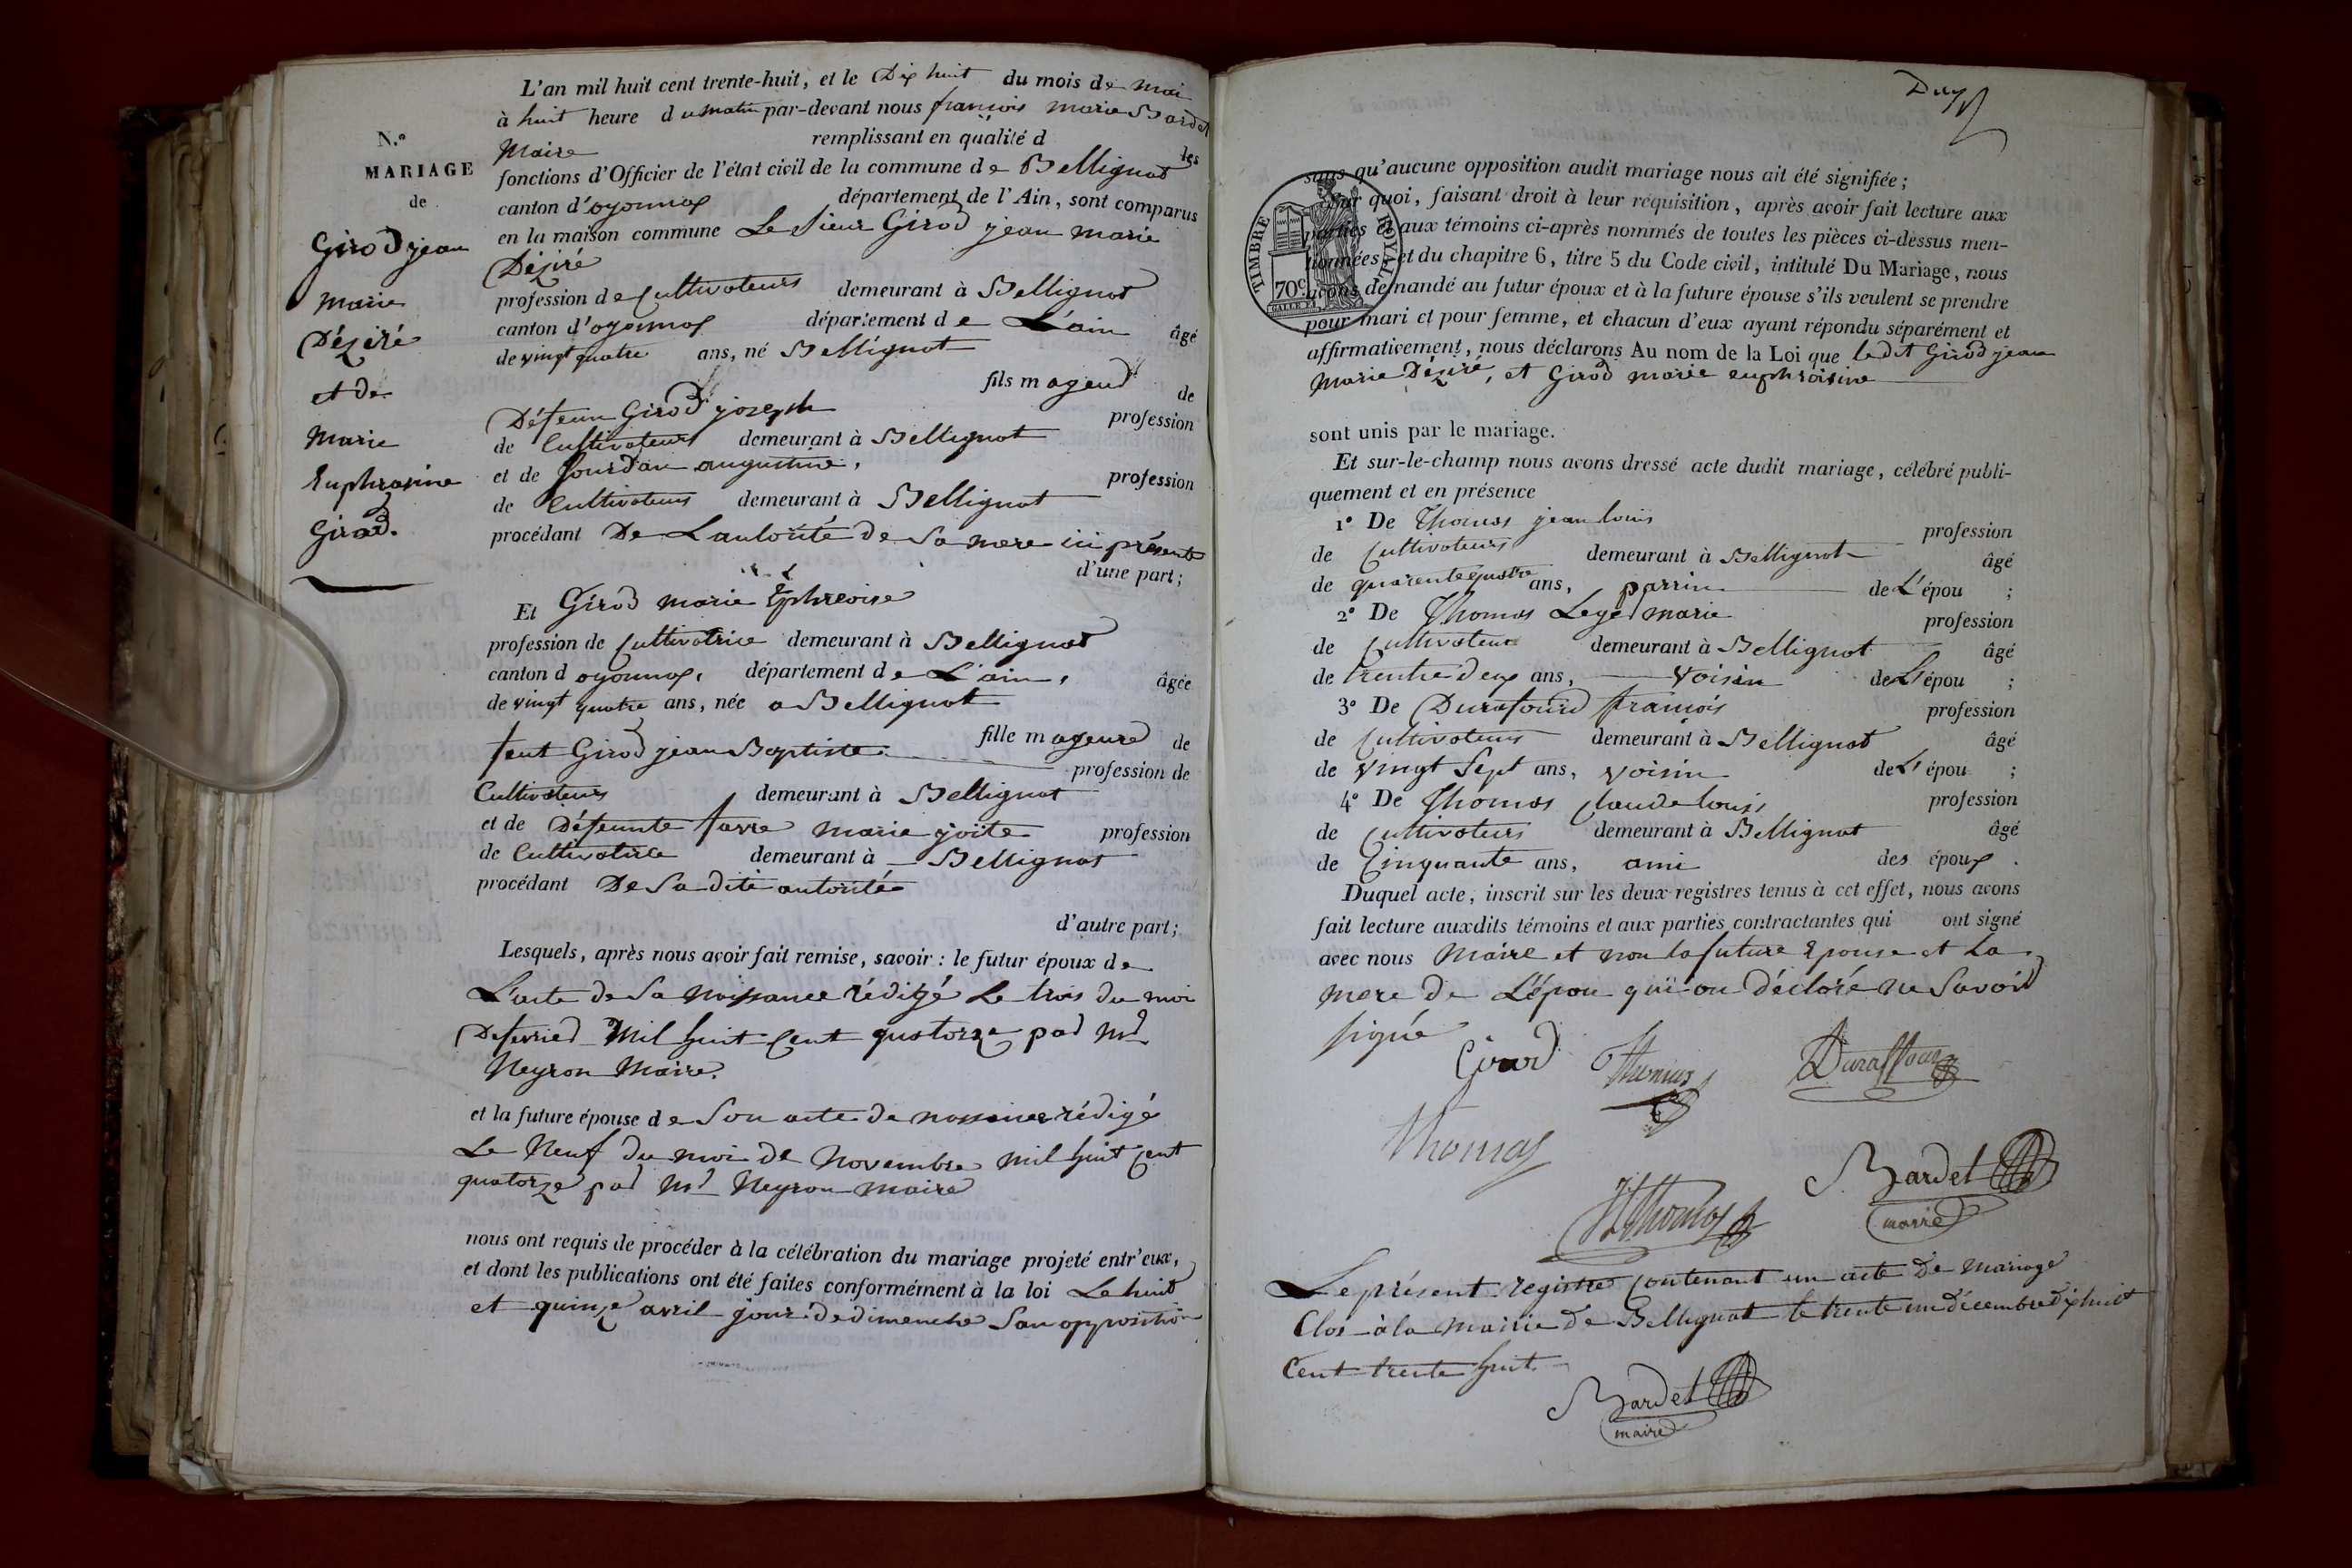 L'an mil huit cent trente-huit, et le Dix huit du mois de mai
à huit heure du matin par-devant nous françois marie Bardet
Maire remplissant en qualité d les
fonctions d'Officier de l'état civil de la commune de Bellignat
canton d'oyonnax département de l'Ain, sont comparus
en la maison commune Le Sieur Girod jean marie
Déziré
profession de Cultivateurs demeurant à Bellignat
canton d'oyonnax département de L'ain âgé
de vingt quatre ans, né Bellignat
fils mageur de
Défeun Girod joseph profession
de Cultivateurs demeurant à Bellignat
et de Jourdan augustine, profession
de Cultivateurs demeurant à Bellignat
procédant De L'autorité de Sa mere ici présente
d'une part;
Et Girod marie Ephroise
profession de Cultivatrice demeurant à Bellignat
canton d oyonnax, département de L'ain, âgée
de vingt quatre ans, née a Bellignat
fille mageure de
feut Girod jean Baptiste profession de
Cultivateurs demeurant à Bellignat
et de Défeunte favre marie joite profession
de Cultivatrice demeurant à Bellignat
procédant De Sa dite autorité
d'autre part;
Lesquels, après nous avoir fait remise, savoir : le futur époux de
L'acte de Sa naissance rédigé Le trois du moi
De fevrier Mil huit Cent quatorze par Mr
Neyron Maire.
et la future épouse de Son acte de naissance rédigé
Le Neuf du moi de Novembre mil huit Cent
quatorze par Mr Neyron maire
nous ont requis de procéder à la célébration du mariage projeté entr'eux,
et dont les publications ont été faites conformément à la loi Le huit
et quinze avril jour de dimenche San opposition
N.o
MARIAGE
de
Girod jean
Marie
Déziré
et de
Marie
Euphrasine
Girod.
TIMBRE ROYAL
70c
sans qu'aucune opposition audit mariage nous ait été signifiée;
Sur quoi, faisant droit à leur réquisition, après avoir fait lecture aux
parties et aux témoins ci-après nommés de toutes les pièces ci-dessus men-
tionnées, et du chapitre 6, titre 5 du Code civil, intitulé Du Mariage, nous
avons demandé au futur époux et à la future épouse s'ils veulent se prendre
pour mari et pour femme, et chacun d'eux ayant répondu séparément et
affirmativement, nous déclarons Au nom de la Loi que ledit Girod jean
Marie Déziré, et Girod marie euphroisine
sont unis par le mariage.
Et sur-le-champ nous avons dressé acte dudit mariage, célébré publi-
quement et en présence
1o De Thomas jean louis profession
de Cultivateurs demeurant à Bellignat âgé
de quarente quatre ans, parrin de L'épou ;
2o De Thomas Leger marie profession
de Cultivateur demeurant à Bellignat âgé
de trentre deux ans, voisin de L'épou ;
3o De Durafourd françois profession
de Cultivateurs demeurant à Bellignat âgé
de vingt Sept ans, voisin de L'épou ;
4o De Thomas Claude louis profession
de Cultivateurs demeurant à Bellignat âgé
de Cinquante ans, ami des époux.
Duquel acte, inscrit sur les deux registres tenus à cet effet, nous avons
fait lecture auxdits témoins et aux parties contractantes qui ont signé
avec nous Maire et non la future Epouse et La
mere de L'épou qui on déclaré ne Savoir
signé
Girod Thomas Duraffour
Thomas
Bardet
maire
Thomas
Le présent registre Contenant un acte De mariage
Clos à la Mairie de Bellignat le trente un décembre dix huit
Cent trente huit
Bardet
maire